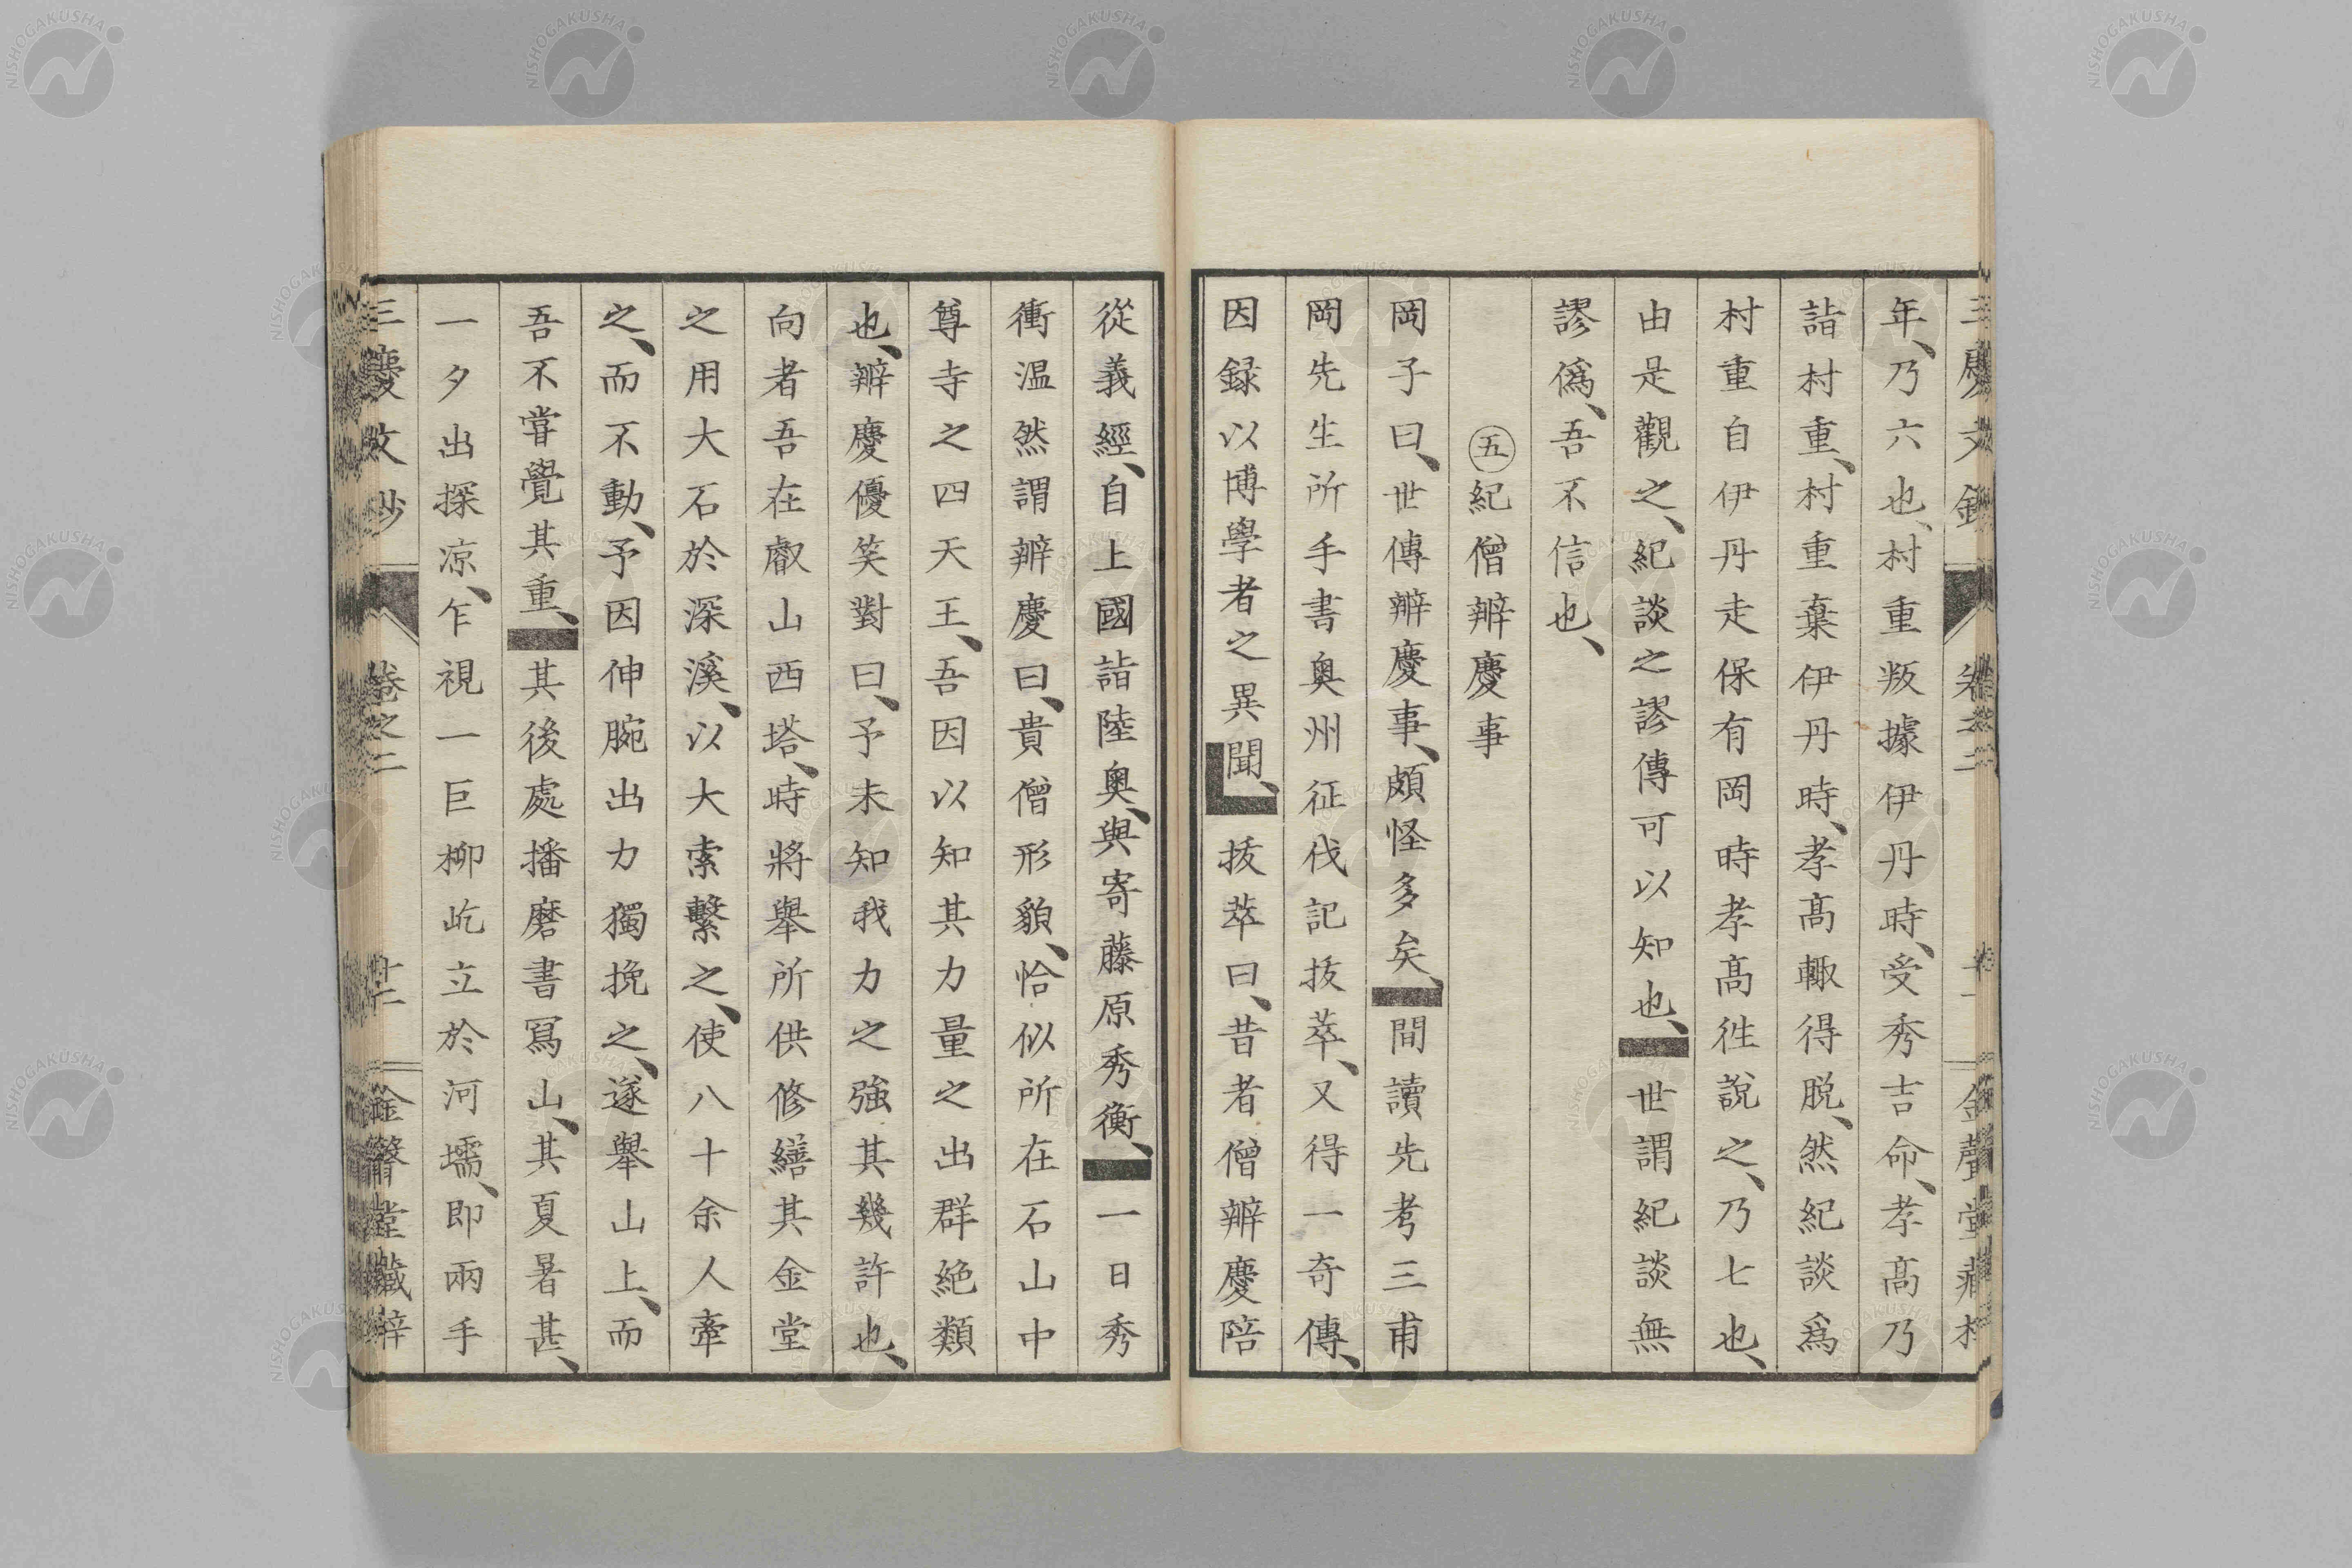 三慶文鈔 卷之二 金聲堂藏梓
年、乃六也、村重叛據伊丹時、受秀吉命、孝髙乃
詣村重、村重棄伊丹時、孝髙輙得脱、然紀談爲
村重自伊丹走保有岡時孝髙徃說之、乃七也、
由是觀之、紀談之謬傳可以知也、世謂紀談無
謬僞、吾不信也、
五紀僧辨慶事
岡子曰、世傳辨慶事、頗怪多矣、間讀先考三甫
岡先生所手書奥州征伐記抜萃、又得一奇傳、
因録以博學者之異聞、抜萃曰、昔者僧辨慶陪
從義經、自上國詣陸奥、與寄藤原秀衡、一日秀
衝温然謂辨慶曰、貴僧形貌、恰似所在石山中
尊寺之四天王、吾因以知其力量之出群絶類
也、辨慶優笑對曰、予未知我力之強其幾許也、
向者吾在叡山西塔、時將舉所供修繕其金堂
之用大石於深溪、以大索繫之、使八十余人牽
之、而不動、予因伸腕出力獨挽之、遂舉山上、而
吾不甞覺其重、其後處播磨書冩山、其夏暑甚、
一夕出探凉、乍視一巨柳屹立於河壖、即兩手
三慶文鈔 卷之二 廿二 金聲堂藏梓
NISHOGAKUSHA